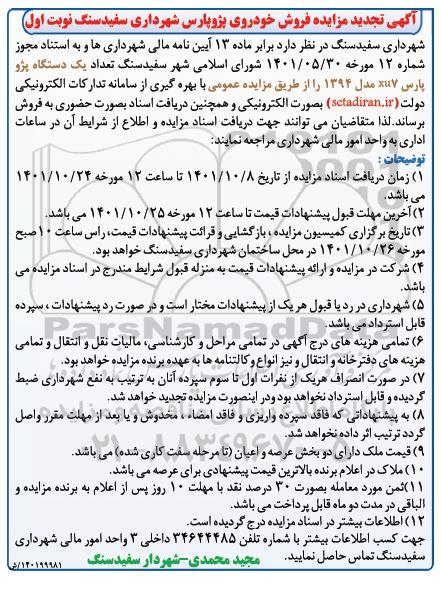 آگهی تجدید مزایده فروش خودروی پژوپارس شهرداری سفیدسنگ نوبت اول
شهرداری سفیدسنگ در نظر دارد برابر ماده ۱۳ آیین نامه مالی شهرداری ها و به استناد مجوز
شماره ۱۲ مورخه ۱۴۰۱/۰۵/۳۰ شورای اسلامی شهر سفیدسنگ تعداد یک دستگاه پژو
پارس xu۷ مدل ۱۳۹۴ را از طریق مزایده عمومی با بهره گیری از سامانه تدارکات الکترونیکی
دولت (setadiran.ir) بصورت الکترونیکی و همچنین دریافت اسناد بصورت حضوری به فروش
برساند.لذا متقاضیان می توانند جهت دریافت اسناد مزایده و اطلاع از شرایط آن در ساعات
اداری به واحد امور مالی شهرداری مراجعه نمایند:
توضیحات :
۱) زمان دریافت اسناد مزایده از تاریخ ۱۴۰۱/۱۰/۸ تا ساعت ۱۲ مورخه ۱۴۰۱/۱۰/۲۴ می
باشد.
۲) آخرین مهلت قبول پیشنهادات قیمت تا ساعت ۱۲ مورخه ۱۴۰۱/۱۰/۲۵ می باشد.
۳) تاریخ برگزاری کمیسیون مزایده ، بازگشایی و قرائت پیشنهادات قیمت، راس ساعت ۱۰ صبح
مورخه ۱۴۰۱/۱۰/۲۶ در محل ساختمان شهرداری سفیدسنگ خواهد بود.
۴) شرکت در مزایده و ارائه پیشنهادات قیمت به منزله قبول شرایط مندرج در اسناد مزایده می
باشد.
۵) شهرداری در رد یا قبول هر یک از پیشنهادات مختار است و در صورت رد پیشنهادات ، سپرده
قابل استرداد می باشد.
۶) تمامی هزینه های درج آگهی در تمامی مراحل و کارشناسی، مالیات نقل و انتقال و تمامی
هزینه های دفترخانه و انتقال و نیز انواع وکالتنامه ها به عهده برنده مزایده خواهد بود.
۷) در صورت انصراف هریک از نفرات اول تا سوم سپرده آنان به ترتیب به نفع شهرداری ضبط
گردیده و قابل استرداد نخواهد بود ودر اینصورت مزایده تجدید خواهد شد.
۸) به پیشنهاداتی که فاقد سپرده واریزی و فاقد امضاء ، مخدوش و یا بعد از مهلت مقرر واصل
گردد ترتیب اثر داده نخواهد شد.
۹) قیمت ملک دارای دو بخش عرصه و اعیان (تا مرحله سفت کاری شده) می باشد.
۱۰) ملاک در اعلام برنده بالاترین قیمت پیشنهادی برای عرصه می باشد.
۱۱)ثمن مورد معامله بصورت ۳۰ درصد نقد با مهلت ۱۰ روز پس از اعلام به برنده مزایده و
الباقی در مدت دو ماه قابل پرداخت می باشد.
۱۲) اطلاعات بیشتر در اسناد مزایده درج گردیده است.
جهت کسب اطلاعات بیشتر با شماره تلفن ۳۴۶۴۴۴۸۵ داخلی ۳ واحد امور مالی شهرداری
سفیدسنگ تماس حاصل نمایید.
مجید محمدی-شهردار سفیدسنگ
۱۴۰۱۹۹۹۸۱/ش
ParsNamadData